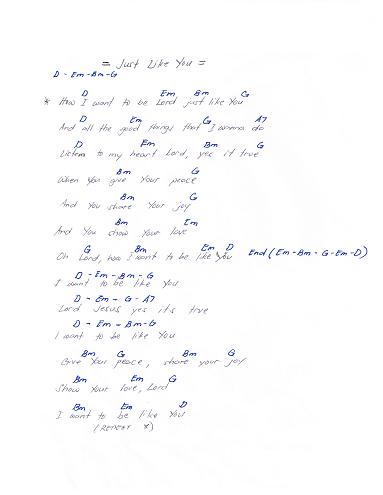 = Just Like You =
D - Em - Bm - G
D Em Bm G
* How I want to be Lord just like You
D Em G A7
And all the good things that I wanna do
D Em Bm G
Listen to my heart Lord, yes it true
Bm G
When You give Your peace
Bm G
And You share Your joy
Bm Em
And You show Your love
G Bm Em D End (Em - Bm - G - Em - D)
Oh Lord, how I want to be like You
D - Em - Bm - G
I want to be like You
D - Em - G - A7
Lord Jesus yes it's true
D - Em - Bm - G
I want to be like You
Bm G Bm G
Give Your peace, share your joy
Bm Em G
Show Your love, Lord
Bm Em D
I want to be like You
(REPEAT *)